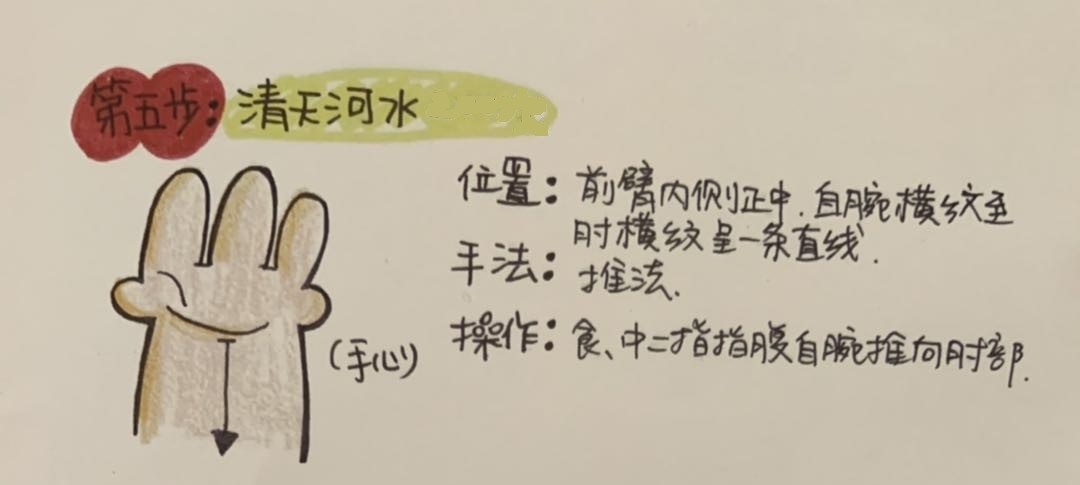 第五步：清天河水
位置：前臂内侧正中，自腕横纹至
肘横纹呈一条直线.
手法：推法.
操作：食、中二指指腹自腕推向肘部.
(手心)